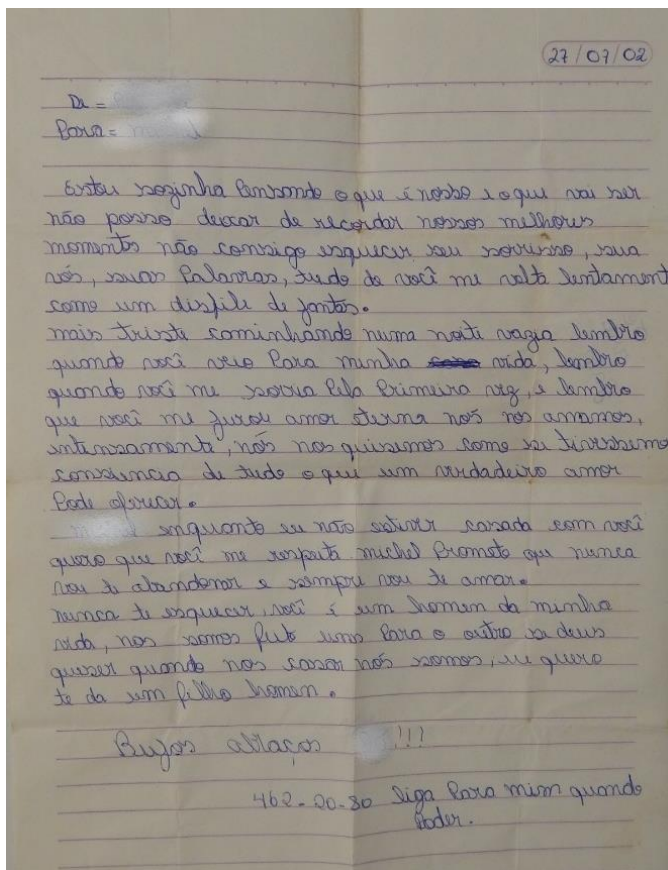 27/07/02
De =
Para =
Estou sozinha Pensando o que é nosso e o que vai ser
não posso deixar de recordar nossos melhores
momentos não consigo esquecer seu sorrisso, sua
vós, suas Palavras, tudo de você me volta lentament
como um disfile de fontos.
mais triste caminhando numa noite vazia lembro
quando você veio Para minha vida, lembro
quando você me sorriu Pela Primeira vez, e lembro
que você me jurou amor eterna nós nos amamos,
intensamente, nós nos quisemos como se tivessimo
consiencia de tudo o que um verdadeiro amor
Pode oferecer.
enquanto eu não estiver casada com você
quero que você me respeita michel Prometo que nunca
vou te abandonar e sempre vou te amar.
nunca te esquecer, você é um homem da minha
vida, nos somos feito uns Para o outro se deus
quiser quando nos casar nós somos, eu quero
te da um filho homen.
Beijos abraços !!!
462-20-80 liga Para mim quando
Poder.